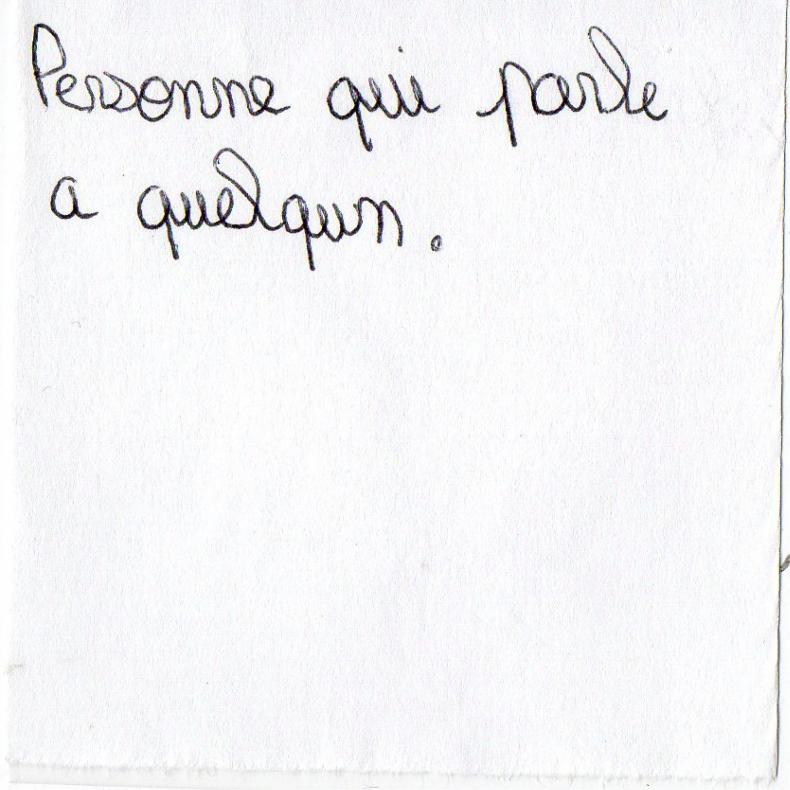 Personne qui parle
a quelqun.